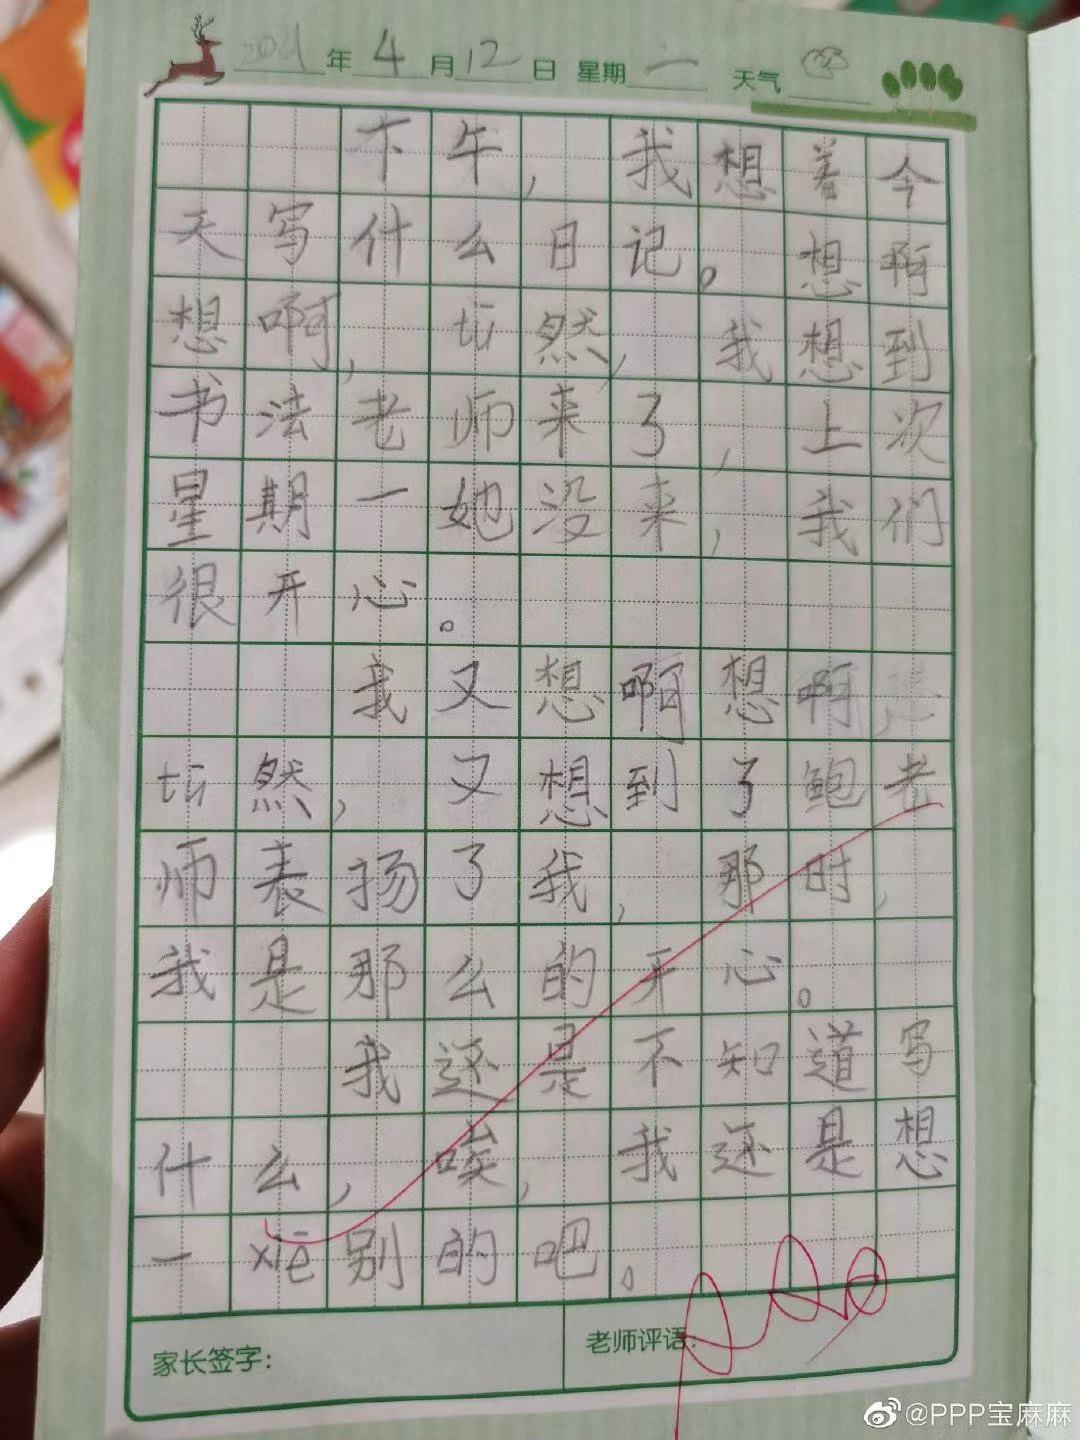 2021年4月12日 星期一 天气
下午,我想着今
天写什么日记。想啊
想啊,tū然,我想到
书法老师来了,上次
星期一她没来,我们
很开心。
我又想啊想啊,
tū然,又想到了鲍老
师表扬了我,那时,
我是那么的开心。
我还是不知道写
什么,唉,我还是想
一xiē别的吧。
家长签字:
老师评语:
@PPP宝麻麻